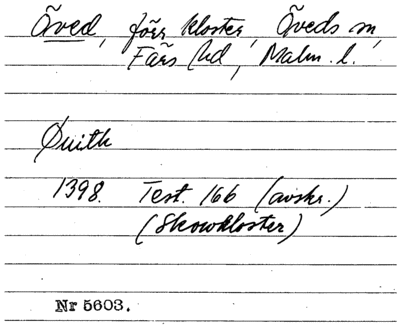 Öved, förr kloster, Öveds sn,
Färs hd, Malm. l.
Øuith
1398. Test. 166 (avskr.)
(Skowkloster)
Nr 5603.